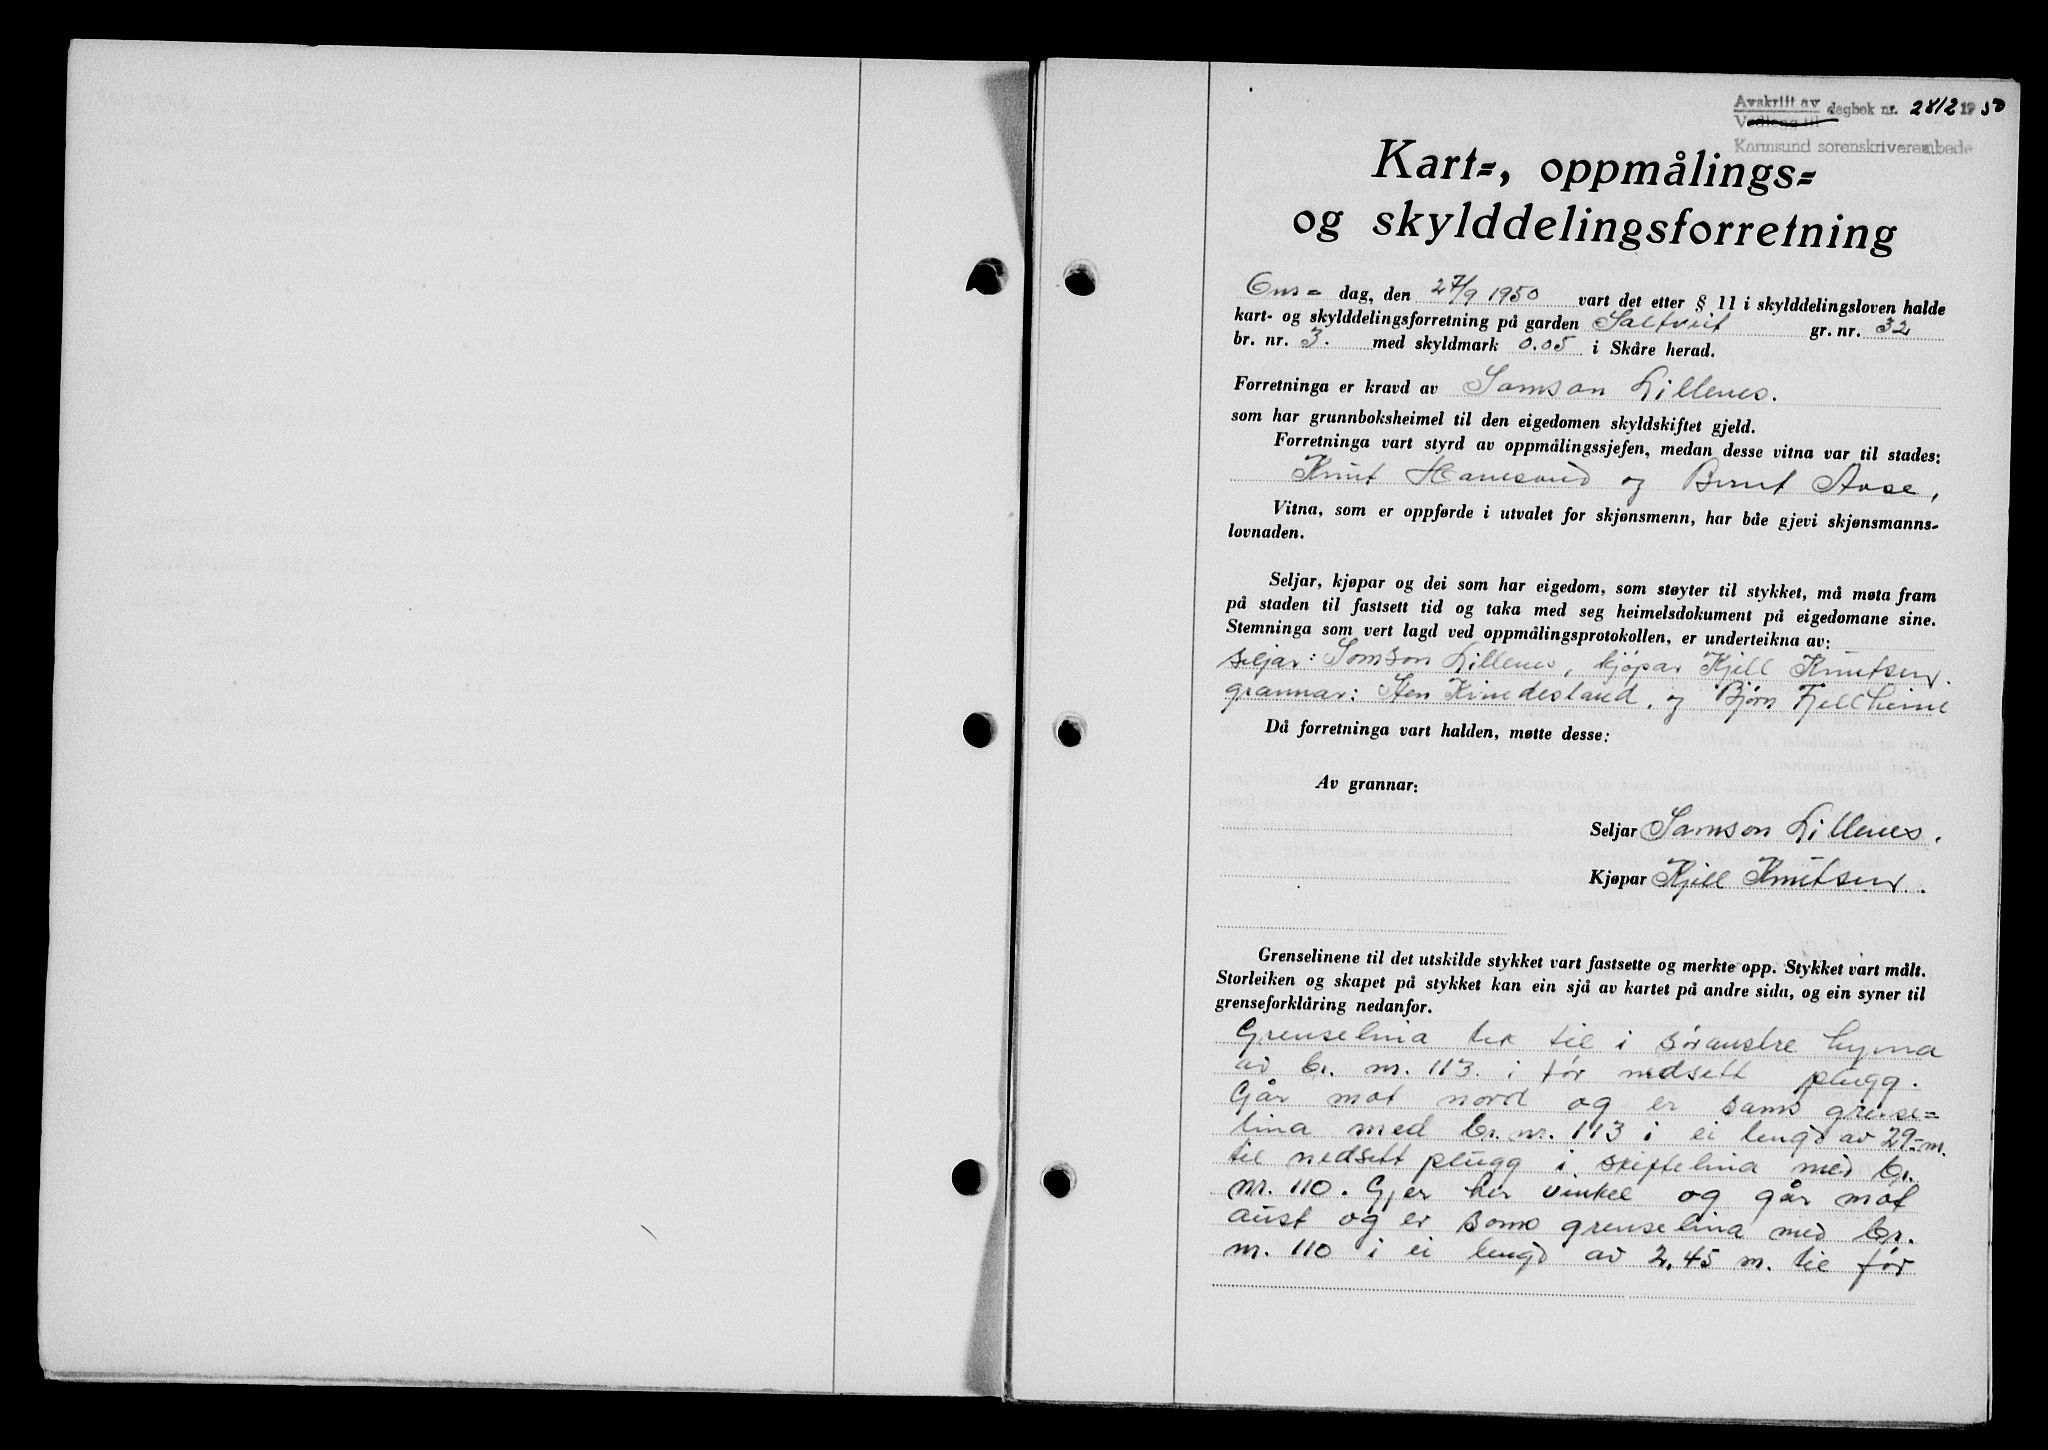 Avskrift av dagbok nr. 2812 1950
Vedlegg til
Karmsund sorenskriverembede
Kart-, oppmålings-
og skylddelingsforretning
Ons- dag, den 27/9 1950 vart det etter § 11 i skylddelingsloven halde
kart- og skylddelingsforretning på garden Saltveit gr. nr. 32
br. nr. 3. med skyldmark 0.05 i Skåre herad.
Forretninga er kravd av Samson Lillenes.
som har grunnboksheimel til den eigedomen skyldskiftet gjeld.
Forretninga vart styrd av oppmålingssjefen, medan desse vitna var til stades:
Knut Hanesand og Bernt Aase,
Vitna, som er oppførde i utvalet for skjønsmenn, har båe gjevi skjønsmanns-
lovnaden.
Seljar, kjøpar og dei som har eigedom, som støyter til stykket, må møta fram
på staden til fastsett tid og taka med seg heimelsdokument på eigedomane sine.
Stemninga som vert lagd ved oppmålingsprotokollen, er underteikna av:
seljar: Samson Lillenes, kjøpar Kjell Knutsen.
grannar: Sten Kindesland, og Bjørn Fjellheim
Då forretninga vart halden, møtte desse:
Av grannar:
Seljar Samson Lillenes.
Kjøpar Kjell Knutsen.
Grenselinene til det utskilde stykket vart fastsette og merkte opp. Stykket vart målt.
Storleiken og skapet på stykket kan ein sjå av kartet på andre sida, og ein syner til
grenseforklåring nedanfor.
Grenselina tek til i søraustre hyrna
av br. nr. 113 i før nedsett plugg.
Går mot nord og er sams grense-
lina med br. nr. 113 i ei lengd av 29.- m.
til nedsett plugg i skiftelina med br.
nr. 110. Gjer her vinkel og går mot
aust og er sams grenselina med br.
nr. 110 i ei lengd av 2,45 m. til før